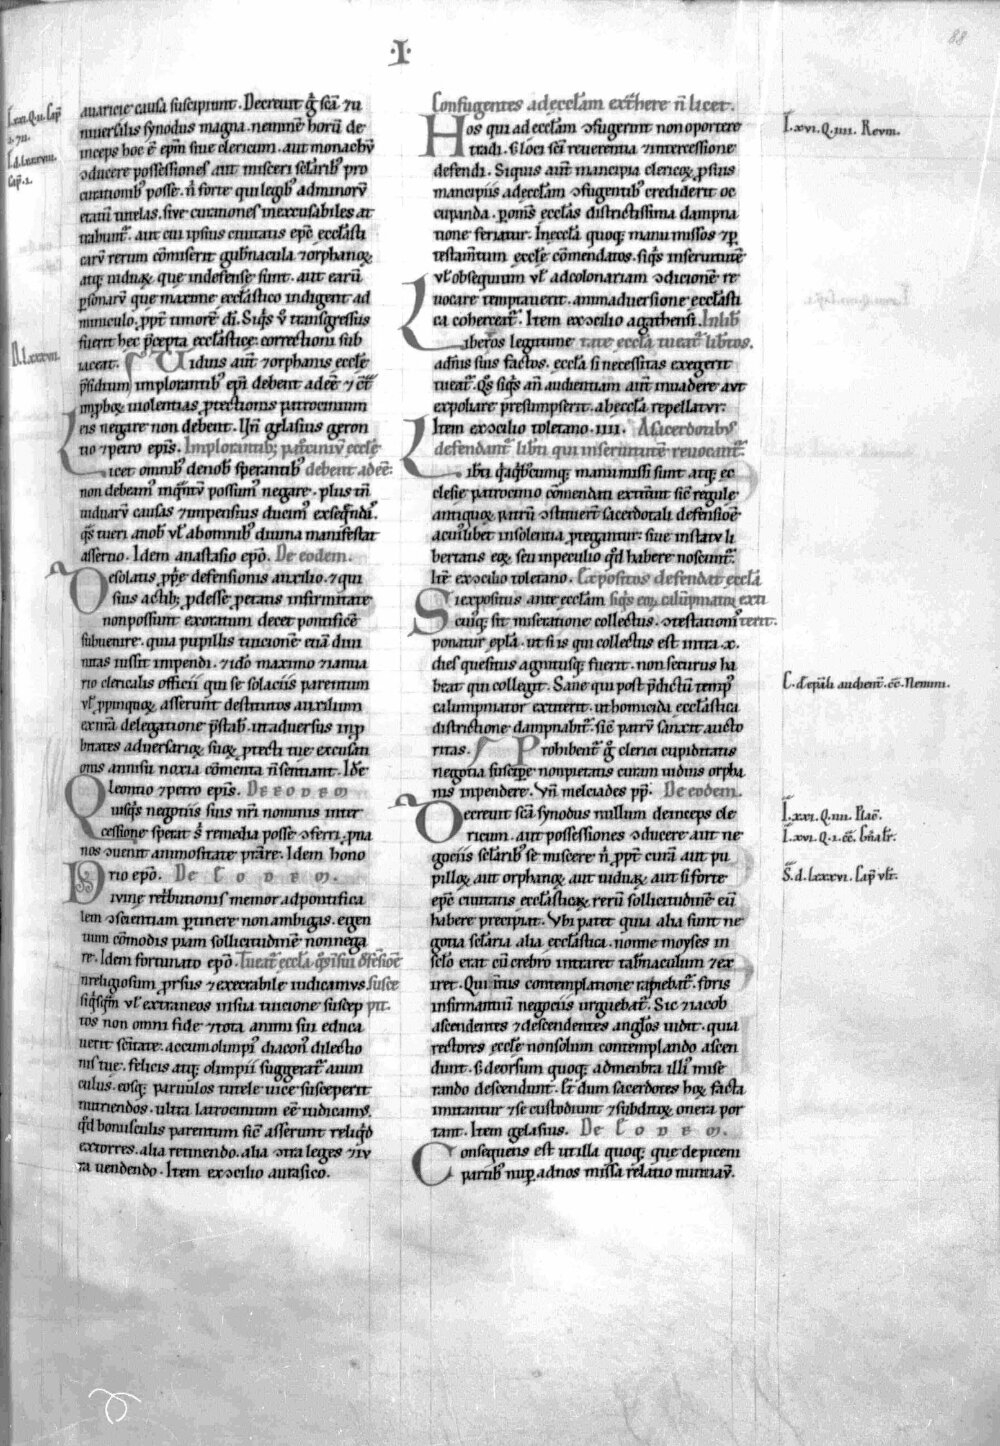 ·I·
88
auaricie causa suscipiunt. Decreuit g̊ sc̄a ⁊ u
niuersalis synodus magna. neminē horū de
inceps hoc ē ep̄m siue clericum. aut monachū
ɔducere possessiones aut misceri sc̄larib᷒ pro
curationib᷒ posse. n̄ forte qui legib᷒ ad minorū
etatū tutelas. siue curationes inexcusabiles at
trahunt᷑. aut cui ipsius ciuitatis ep̄c eccl̄asti
carū rerum cōmiserit gub̄nacula ⁊ orphanoꝝ
atq; uiduaꝝ que indefense sunt. aut earū
ꝑsonarū que maxime eccl̄astico indigent ad
miniculo. ꝓpt̄ timorē dī. Siq̄s ů transgressus
fuerit hec p̄cepta eccl̄astice correctioni sub
iaceat. Uiduis aut̄ ⁊ orphanis eccl̄e
p̄sidium implorantib᷒ ep̄i debent adeē ⁊ ɔt̄
improboꝝ uiolentias ꝓtectionis patrocinium
eis negare non debent. Un̄ gelasius geron
tio ⁊ petro ep̄is. Implorantib; pat̊ciniū eccl̄e
Licet omnib᷒ de nob̄ sperantib᷒ debent adeē:
non debeam᷒ inq̄ntū possum᷒ negare. plus tn̄
uiduarū causas ⁊ impensius ducim᷒ exseq̄ndas.
q̄s tueri a nob̄ uł ab omnib᷒ diuina manifestat
assertio. Idem anastasio ep̄o. De eodem.
Desolatis ꝓp̄e defensionis auxilio. ⁊ qui
suis actib; ꝓdesse ꝑ etatis infirmitatē
non possunt exoratum decet pontificē
subuenire. quia pupillis tuicionē etiā diui
nitas iussit impendi. ⁊ idō maximo ⁊ ianua
rio clericalis officii qui se solaciis parentum
uł ꝓpinquoꝝ asserunt destitutos auxilium
ex mr̄a delegatione p̄stab᷒. ut aduersus inp
bitates aduersarioꝝ suoꝝ ꝓtecti tue excusati
onis annisu noxia cōmenta n̄ sentiant. Idē
Leontio ⁊ petro ep̄is. De eodem
Quisq᷒s negociis suis nr̄i nominis inter
cessione sperat s᷒ remedia posse ɔferri. ꝓna
nos ɔuenit animositate p̄stare. Idem hono
rio ep̄o. De eodem.
Diuine ret̄butionis memor ad pontifica
lem ɔscientiam ꝑtinere non ambigas. egen
tium cōmodis piam sollicitudinē non nega
re. Idem fortunato ep̄o. Tueat᷑ eccl̄a q̄s in sui defēsionē
Irreligiosum ꝓrsus ⁊ execrabile iudicamus. susce
siq᷒sq̄m uł extraneos in sua tuicione suscep pit.
tos non omni fide ⁊ tota animi sui educa
uerit sc̄itate. accum olimpi᷒ diacon᷒ dilectio
nis tue. felicis atq; olimpii suggerat᷑ auun
culus. eosq; paruulos tutele uice susceperit
nutriendos. ultra latrocinium eē iudicam᷒.
q̊d bonusculis parentum sic̄ asserunt reliq̊d
extorres. alia retinendo. alia ɔtra leges ⁊ iu
ra uendendo. Item ex ɔcilio aurasico.
Confugentes ad eccl̄am ext̊here n̄ licet.
Hos qui ad eccl̄am ɔfugerint non oportere
tradi. s; loci sc̄i reuerentia ⁊ intercessione
defendi. Siquis aut̄ mancipia clericoꝝ ꝓ suis
mancipiis ad eccl̄am ɔfugentib᷒ crediderit oc
cupanda. ꝑ om̄s eccl̄as districtissima dampna
tione feriatur. In eccl̄a quoq; manumissos ⁊ ꝑ
testam̄tum eccl̄e cōmendatos. siq᷒s in seruitutē
uł obsequium uł ad colonariam ɔdicionē re
uocare temptauerit. animaduersione eccl̄asti
ca coherceat᷑. Item ex ɔcilio agathensi. In lib̄
Liberos legitime tate eccl̄a tueat᷑ lib̄tos.
a dn̄is suis factos. eccl̄a si necessitas exegerit
tueat᷑. Q̄s siq᷒s an̄ audientiam aut inuadere aut
expoliare presumpserit. ab eccl̄a repellatur.
Item ex ɔcilio toletano .IIII. A sacerdotib᷒
defendant᷑ lib̄ti qui in seruitutē reuocant᷑.
Lib̄ti q̊ a q̊b᷒cumq; manumissi sunt atq; ec
clesie patrocinio cōmendati extant sic̄ regule
antiquoꝝ patrū ɔstituerūt sacerdotali defensiōe
a cui᷒libet insolentia ꝓtegantur. siue in statu li
bertatis eoꝝ seu in peculio q̊d habere noscunt᷑.
Itē ex ɔcilio toletano. Expositos defendat eccl̄a
Si expositus ante eccl̄am siq᷒s eoꝝ calūpniatoꝝ exti
cui᷒q; sit miseratione collectus. ɔtestation᷒ terit.
ponatur ep̄la. ut si is qui collectus est intra .x.
dies quesitus agnitusq; fuerit. non securus ha
beat qui collegit. Sane qui post p̄dictū temp᷒
calumpniator extiterit. ut homicida eccl̄astica
districtione dampnabit᷑. sic̄ patrū sanxit aucto
ritas. Prohibent᷑ g̊ clerici cupiditatis
negotia suscipe non pietatis curam uiduis orpha
nis inpendere. Vn̄ melciades pp̄. De eodem.
Decreuit sc̄a synodus nullum deinceps cle
ricum. aut possessiones ɔducere aut ne
gociis sc̄larib᷒ se miscere n̄ ꝓpt̄ curā aut pu
pilloꝝ aut orphanoꝝ aut uiduaꝝ aut si forte
ep̄c ciuitatis eccl̄asticaꝝ rerū sollicitudinē eū
habere precipiat. Vbi patet quia alia sunt ne
gotia sc̄laria alia eccl̄astica. nonne moyses in
sc̄lo erat cū crebro intraret tab̄naculum ⁊ ex
iret. Qui int᷒ contemplatione rapiebat᷑. foris
infirmantiū negociis urguebat᷑. Sic ⁊ iacob
ascendentes ⁊ descendentes angl̄os uidit. quia
rectores eccl̄e non solum contemplando ascen
dunt. s; deorsum quoq; ad menbra illi᷒ mise
rando descendunt. It̄ dum sacerdotes hoꝝ facta
imitantur ⁊ se custodiunt ⁊ subditoꝝ onera por
tant. Item gelasius. De eodem.
Consequens est ut illa quoq; que de piceni
partib᷒ nup̄ ad nos missa relatio nunciau̅.
D. lxxxvii.
I. xvi. Q. IIII. Reum.
C. d' epāli audient̄. cē. Nemini.
I. xxi. Q. IIII. Plac̄.
I. xvi. Q. 1. cē. Gn̄alr̄.
S. d. lxxxvi. Cap̄ vlt̄.